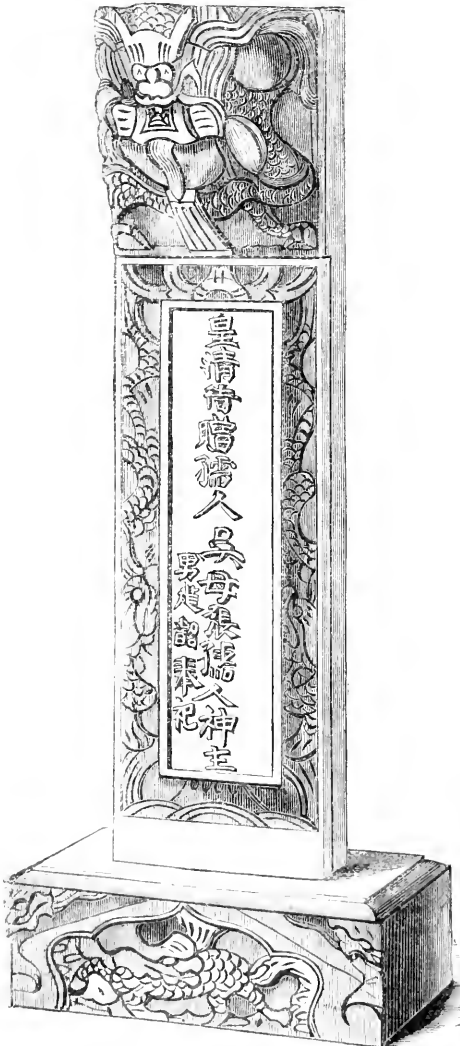 皇清待贈孺人吳母張孺人神主
男韶奉祀